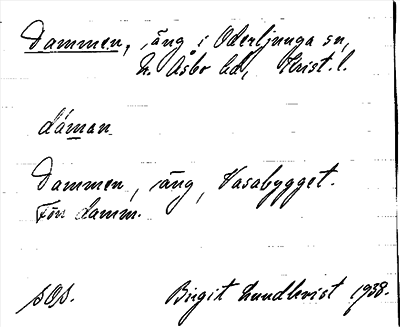 Dammen, äng i Oderljunga sn,
N. Åsbo hd, Krist. l.
dáman
Dammen, äng, Vasabygget.
Förr damm.
sOs. Birgit Lundkvist 1938.